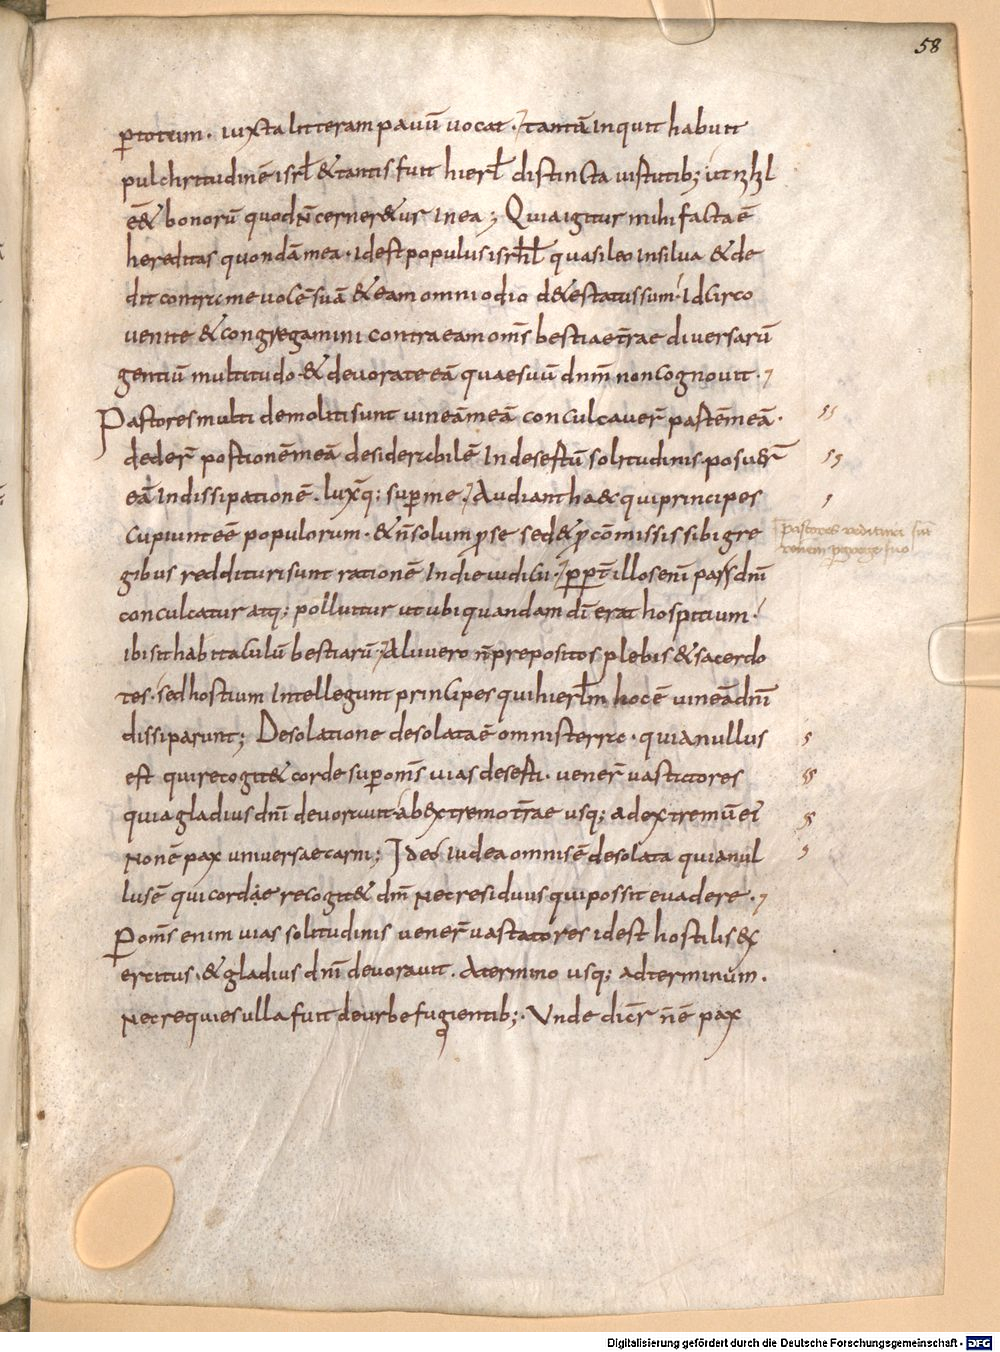 58
ꝑtotum. iuxta litteram pauū uocat. tantā inquit habuit
pulchritudinē isrl̄ & tantis fuit hierl̄ distincta uirtutib; ut nihil
ēēt bonorū quod n̄ cerner&ur in ea; Quia igitur mihi facta ē
hereditas quondā mea. id est populus isrl̄ quasi leo in silua & de
dit contra me uocē suā & eam omni odio d&estatus sum. Idcirco
uenite & congregamini contra eam om̄s bestiae t̄rae diuersarū
gentiū multitudo & deuorate eā quae suū dn̄m non cognouit.
Pastores multi demoliti sunt uineā meā conculcauer̄ partē meā.
deder̄ portionē meā desiderabilē in desertū solitudinis. posuer̄
eā in dissipationē. luxq̄; super me. Audiant haec qui principes
cupiunt ēē populorum. & n̄ solum ꝓ se sed & ꝓ cōmissis sibi gre
gibus reddituri sunt rationē in die iudicii. ꝑꝑ illos enī pars dn̄i
conculcatur atq; polluitur ut ubi quandam dī erat hospitium.
ibi sit habitaculū bestiarū. Alii uero n̄ prepositos plebis & sacerdo
tes. sed hostium intellegunt principes qui hierl̄m hoc ē uineā dn̄i
dissiparunt; Desolatione desolata ē omnis terra. quia nullus
est qui recogit& corde super om̄s uias deserti. uener̄ uastatores
quia gladius dn̄i deuorauit. ab extremo t̄rae usq; ad extremū ei
Non ē pax uniuersae carni; Ideo iudea omnis ē desolata quia nul
lus ē qui corde recogit& dn̄m nec residuus qui possit euadere.
Ꝑ om̄s enim uias solitudinis uener̄ uastatores id est hostilis ex
ercitus. & gladius dn̄i deuorauit. a termino usq; ad terminum.
Nec requies ulla fuit de urbe fugientib;. Unde dicr̄ n̄ ē pax
pastores reddituri sūt
rationem ꝓ grege suo
Digitalisierung gefördert durch die Deutsche Forschungsgemeinschaft - DFG